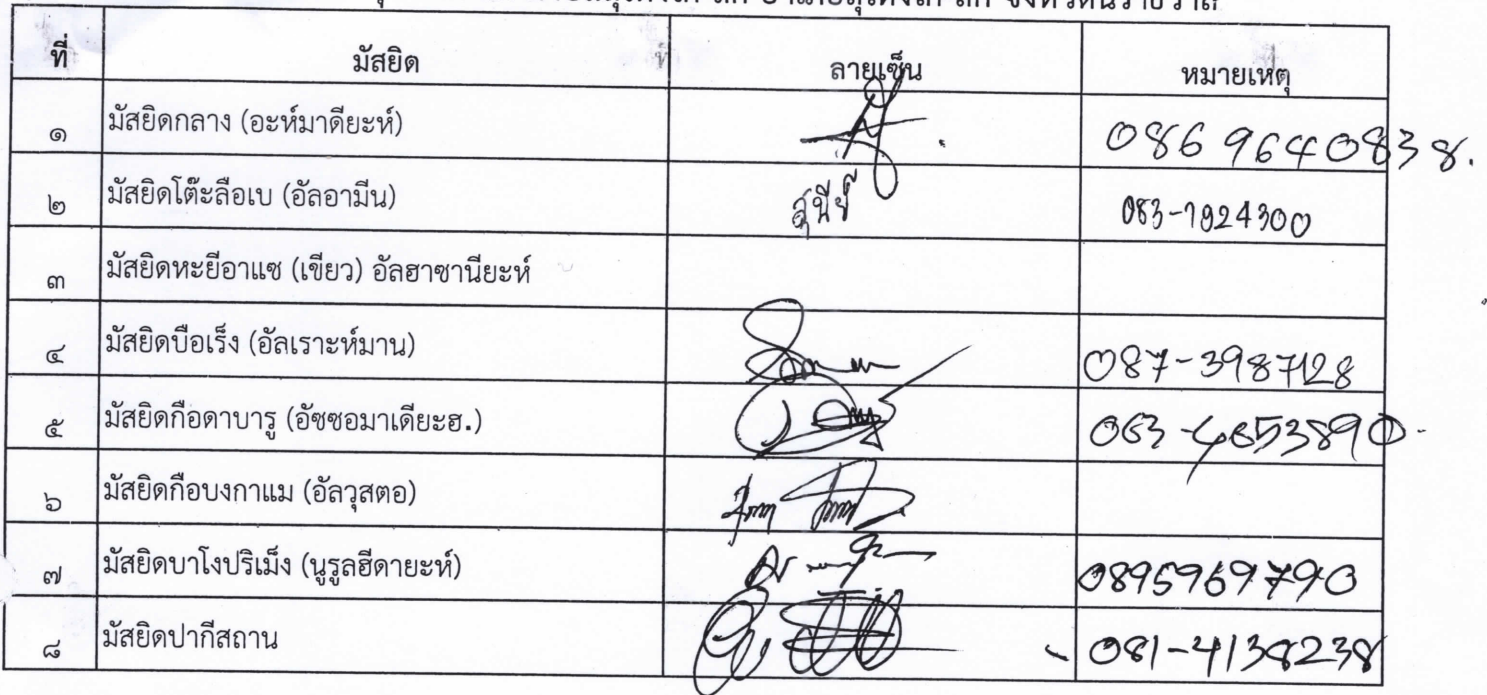 สุไหงโก-ลก อำเภอสุไหงโก-ลก จังหวัดนราธิวาส
ที่ มัสยิด ลายเซ็น หมายเหตุ
๑ มัสยิดกลาง (อะห์มาดียะห์) 086 9640838.
๒ มัสยิดโต๊ะลือเบ (อัลอามีน) สุนีย์ 083-1924300
๓ มัสยิดหะยีอาแซ (เขียว) อัลฮาซานียะห์
๔ มัสยิดบือเร็ง (อัลเราะห์มาน) 087-3987128
๕ มัสยิดกือดาบารู (อัซซอมาเดียะฮ.) 063-4653890
๖ มัสยิดกือบงกาแม (อัลวุสตอ)
๗ มัสยิดบาโงปริเม็ง (นูรูลฮีดายะห์) 0895969790
๘ มัสยิดปากีสถาน 081-4138238